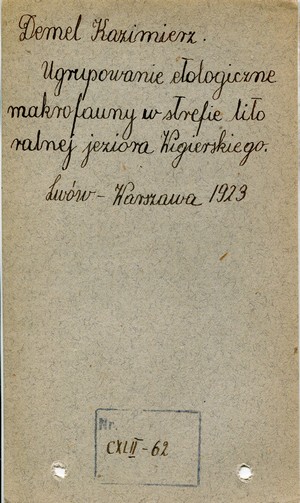 Demel Kazimierz.
Ugrupowanie etologiczne
makrofauny w strefie lito
ralnej jeziora Wigierskiego.
Lwów - Warszawa 1923
Nr.
CXLII - 62